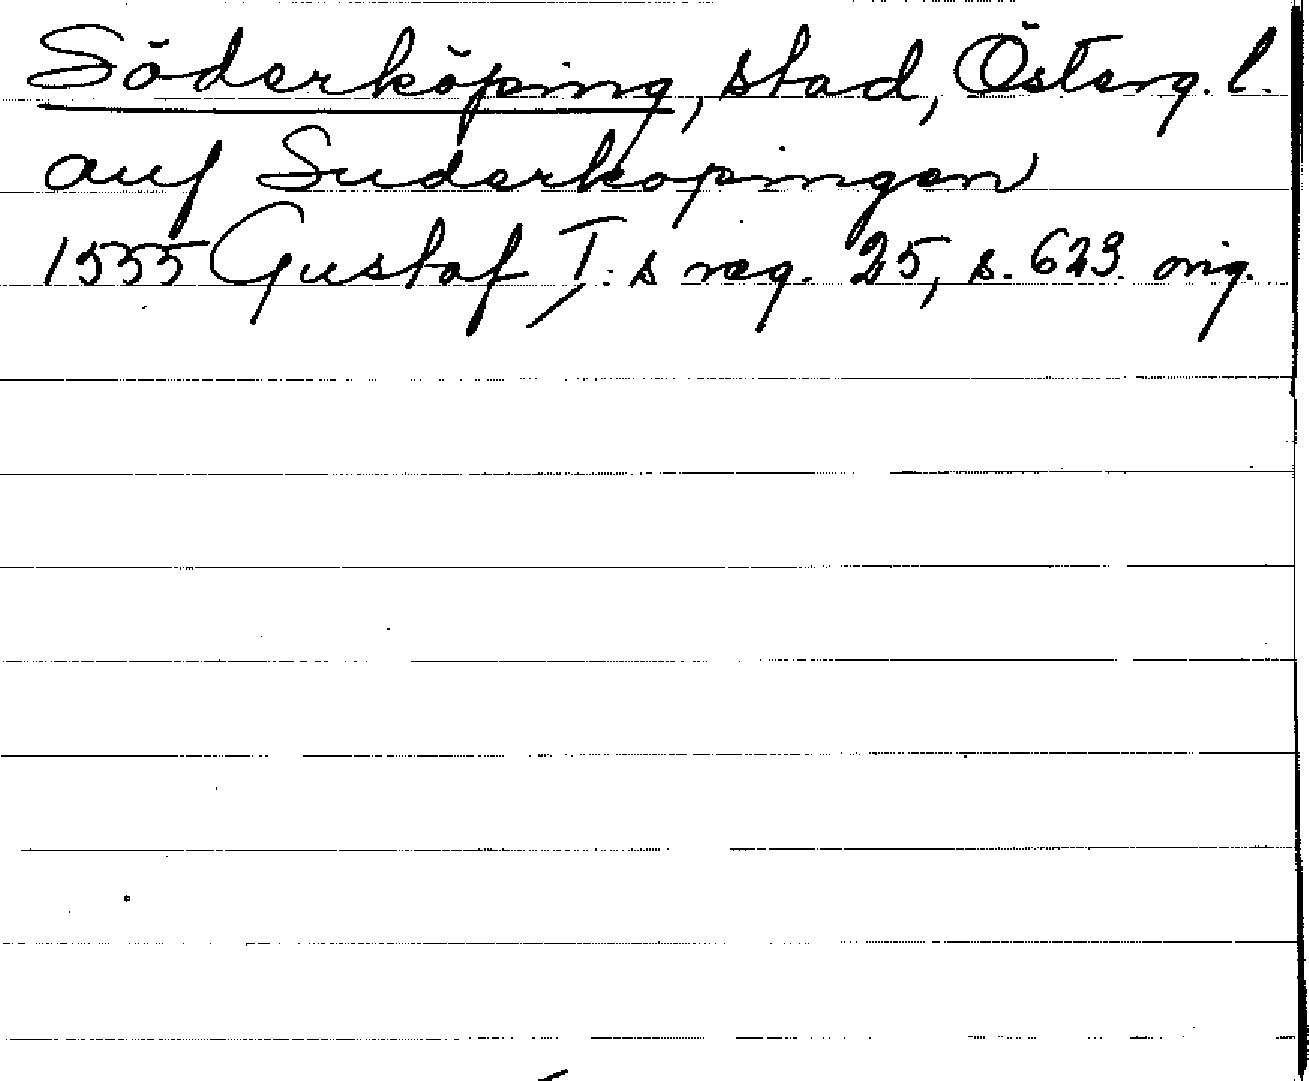 Söderköping, stad, Österg. l.
auf Suderkopingen
1555 Gustaf I:s reg. 25, s. 623. orig.